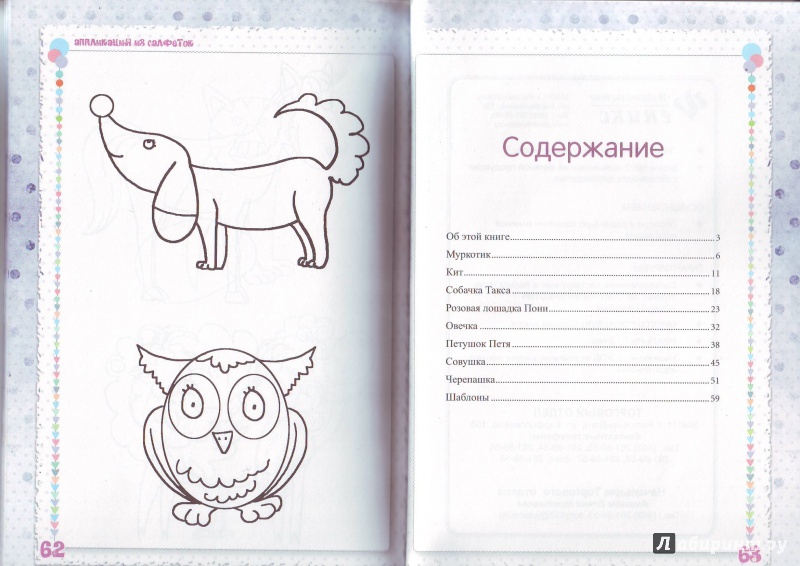 АППЛИКАЦИИ ИЗ САЛФЕТОК
62
Содержание
Об этой книге 3
Муркотик 6
Кит 11
Собачка Такса 18
Розовая лошадка Пони 23
Овечка 32
Петушок Петя 38
Совушка 45
Черепашка 51
Шаблоны 59
63
Лабиринт.ру